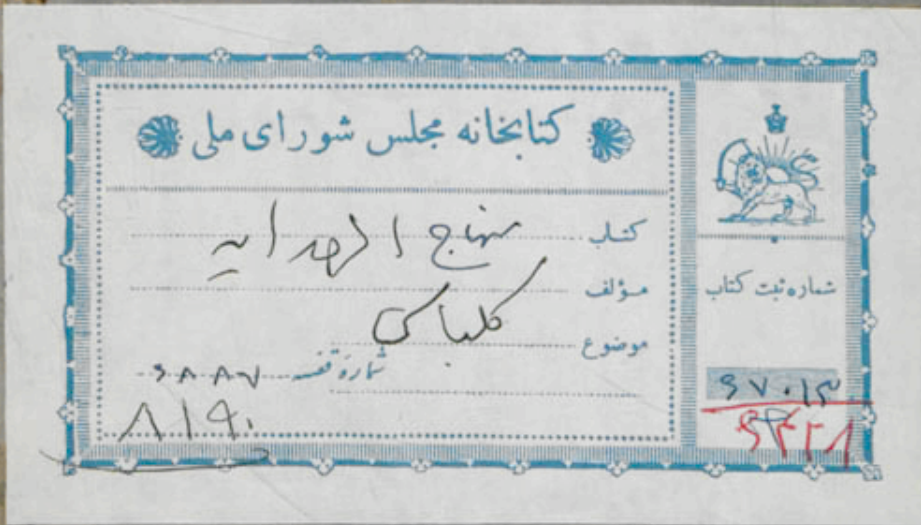 کتابخانه مجلس شورای ملی
کتاب منهاج الهدایه
مؤلف کلباسی
موضوع
شماره قفسه ۶۸۸۷
۸۱۹۰
شماره ثبت کتاب
۶۷۰۱۳